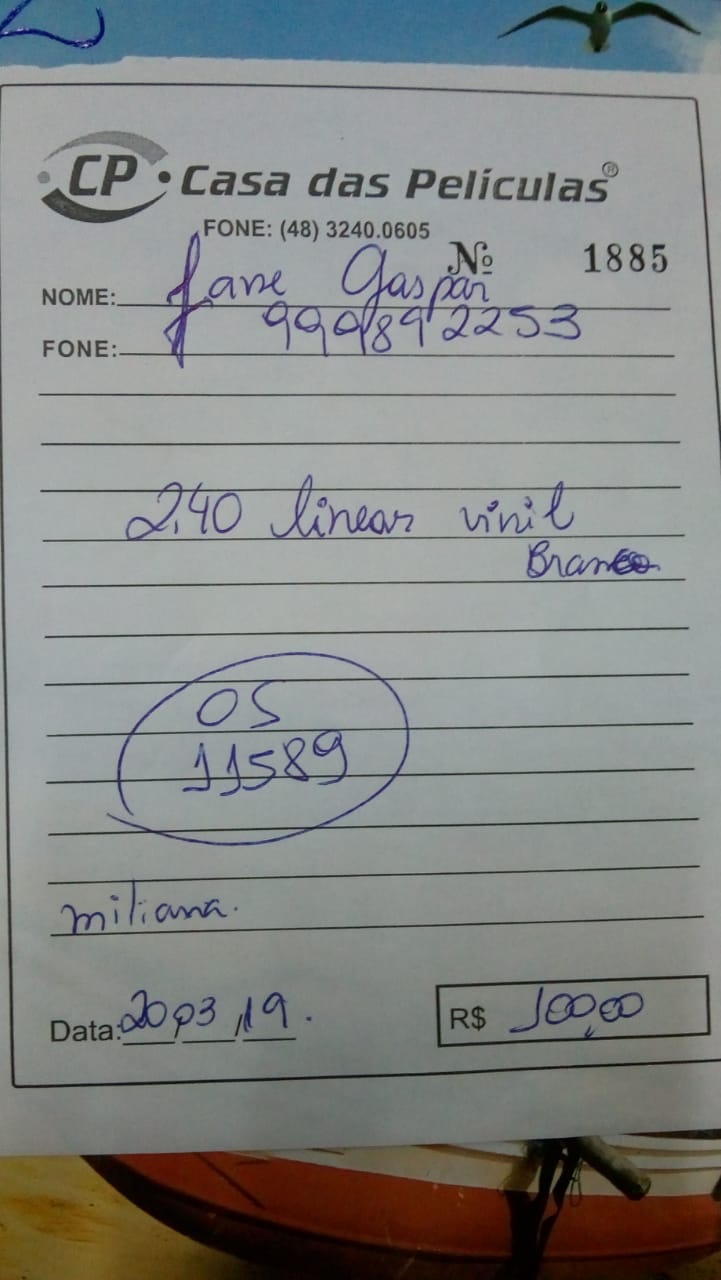 CP Casa das Películas®
FONE: (48) 3240.0605
Nº 1885
NOME: Jane Gaspar
FONE: 999892253
2,40 linear vinil
Branco
OS
11589
miliana.
Data: 20,03,19.
R$ 100,00